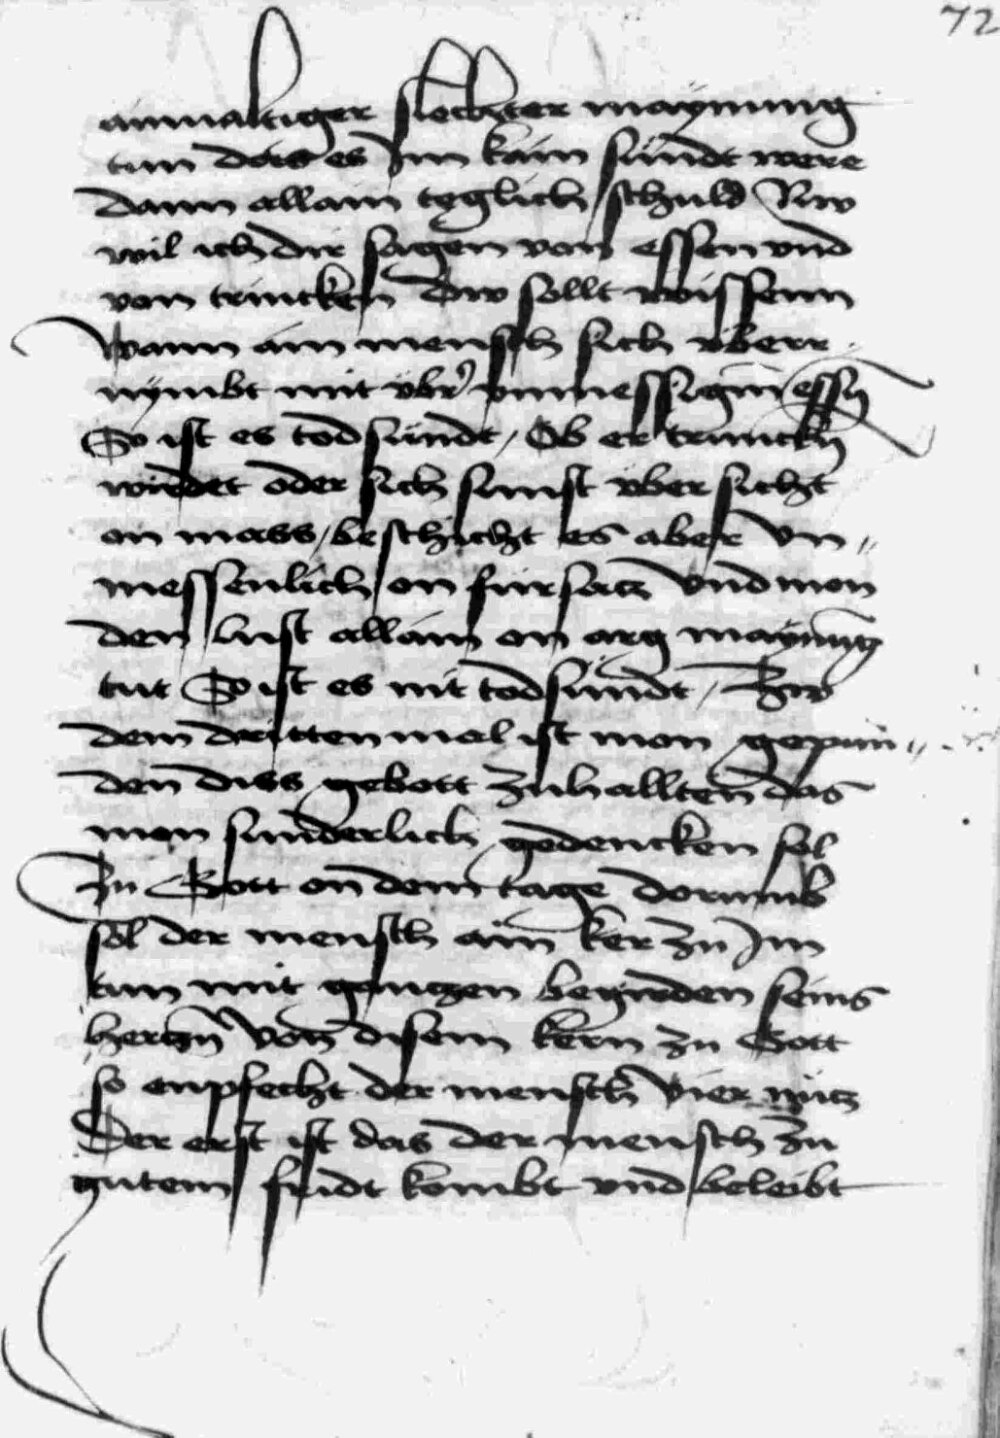 72
ainualtiger slechter maynung
tun das es Im kain sündt were
dann allain teglich schuld Nw
wil ich dir sagen von essen vnd
von trincken Dw sollt wissenn
Wann ain mensch sich vberr
nymbt mit vbr' vnmessigm essn
So ist es todsündt / Ob er trunckn
wirdet oder sich sunst vber sicht
on mass / beschicht es aber vn〃
messenlich on fürsatz vnd mon
den lust allain on arg maynung
tut So ist es nit todsündt / Zw
dem dritten mal ist mon gepun〃
den diss gebott zuhallten das
mon sunderlich gedencken sol
Zu Gott on dem tage dorumb
sol der mensch ain ker zu Im
tun mit gantzen begirden seins
hertzn von disem kern zu Gott
so enpfecht der mensch vier nütz
Der erst ist das der mensch zu
gutem fridt kombt vnd beleibt